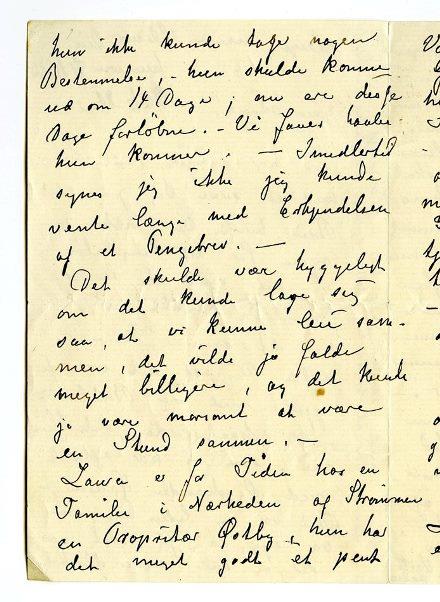 hun ikke kunde tage nogen
Bestemmelse, - hun skulde komme
ud om 14 Dage; nu ere disse
Dage forløbne. - Vi faaer haabe
hun kommer. - Imedlertid
synes jeg ikke jeg kunde
vente længe med Erkjendelsen
af et Pengebrev. -
Det skulde vær hyggeligt
om det kunde lage sig
saa, at vi kunne leie sam-
men, det vilde jo falde
meget billigere, og det kunde
jo være morsomt at være
en Stund sammen. -
Laura er for Tiden hos en
Familie i Nærheden af Strømmen
en Propritær Østby, hun har
det meget godt et pent